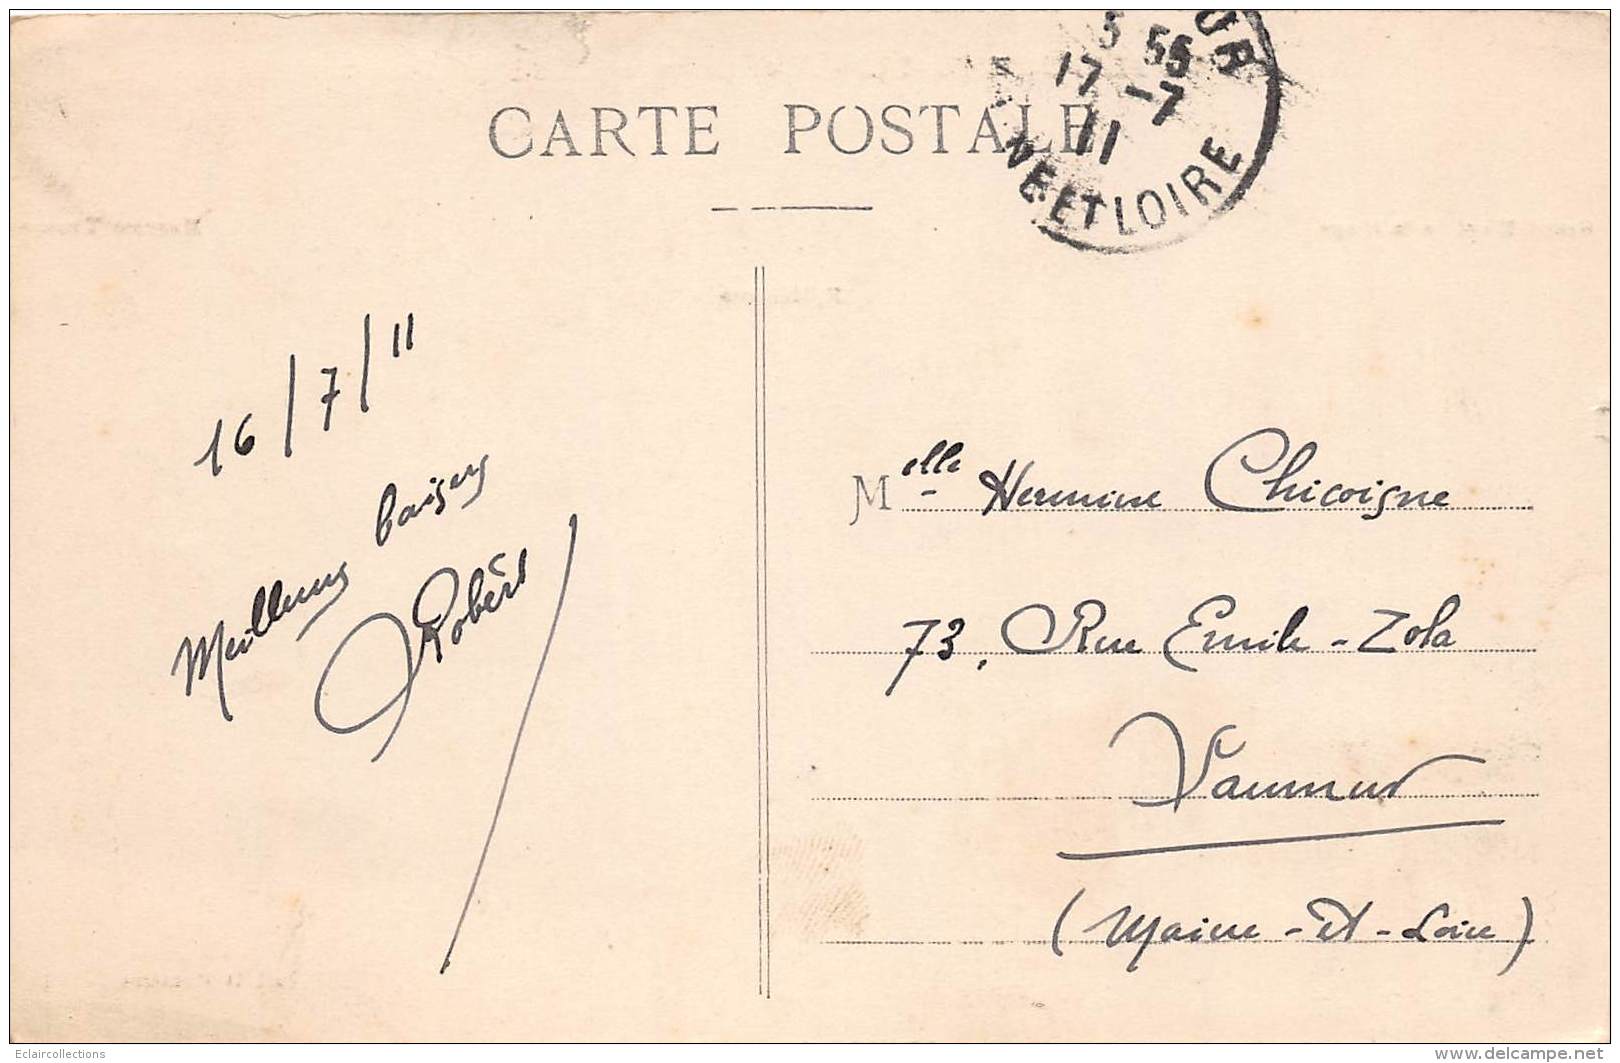 CARTE POSTALE
UR
55
17 -7
11
NE ET LOIRE
16/7/11
Meilleurs baisers
Robert
Melle Hermine Chicoigne
73, Rue Emile-Zola
Saumur
(Maine-et-Loire)
Eclaircollections
www.delcampe.net